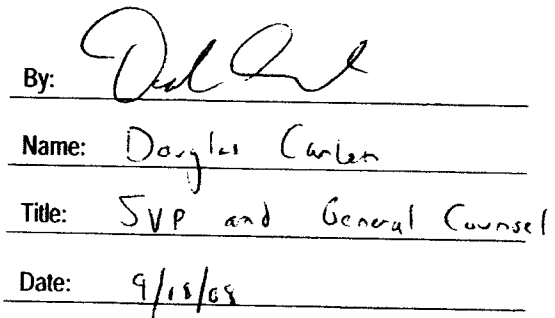 By:
Name: Douglas Carlen
Title: SVP and General Counsel
Date: 9/18/08